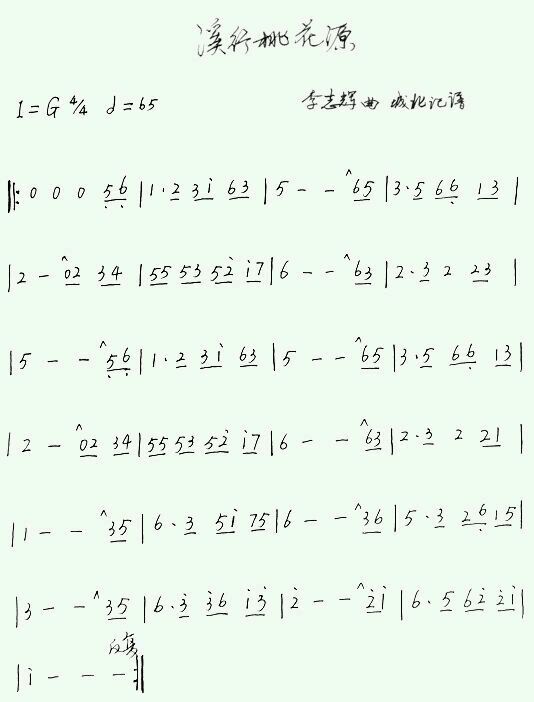 溪行桃花源
1=G 4/4 d=65
李志辉曲 城北记谱
‖: 0 0 0 5̣6̣ | 1·2 3i̇ 63 | 5 - - ^65 | 3·5 66̣ 13 |
| 2 - ^02 34 | 55 53 52̇ i̇7 | 6 - - ^63 | 2·3 2 23 |
| 5 - - ^5̣6̣ | 1·2 3i̇ 63 | 5 - - ^65 | 3·5 66̣ 13 |
| 2 - ^02 34 | 55 53 52̇ i̇7 | 6 - - ^63 | 2·3 2 21 |
| 1 - - ^35 | 6·3 5i̇ 75 | 6 - - ^36 | 5·3 26̣ 15 |
| 3 - - ^35 | 6·3̇ 3̇6 i̇3̇ | 2̇ - - ^2̇i̇ | 6·5 62̇ 2̇i̇ |
| i̇ - - - :‖